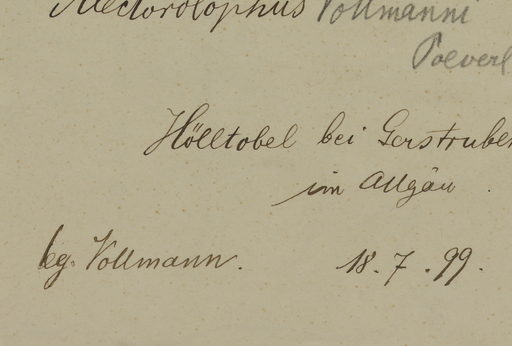 Alectorolophus Vollmanni
Poeverl
Hölltobel bei Gerstruben
im Allgäu.
leg. Vollmann. 18.7.99.